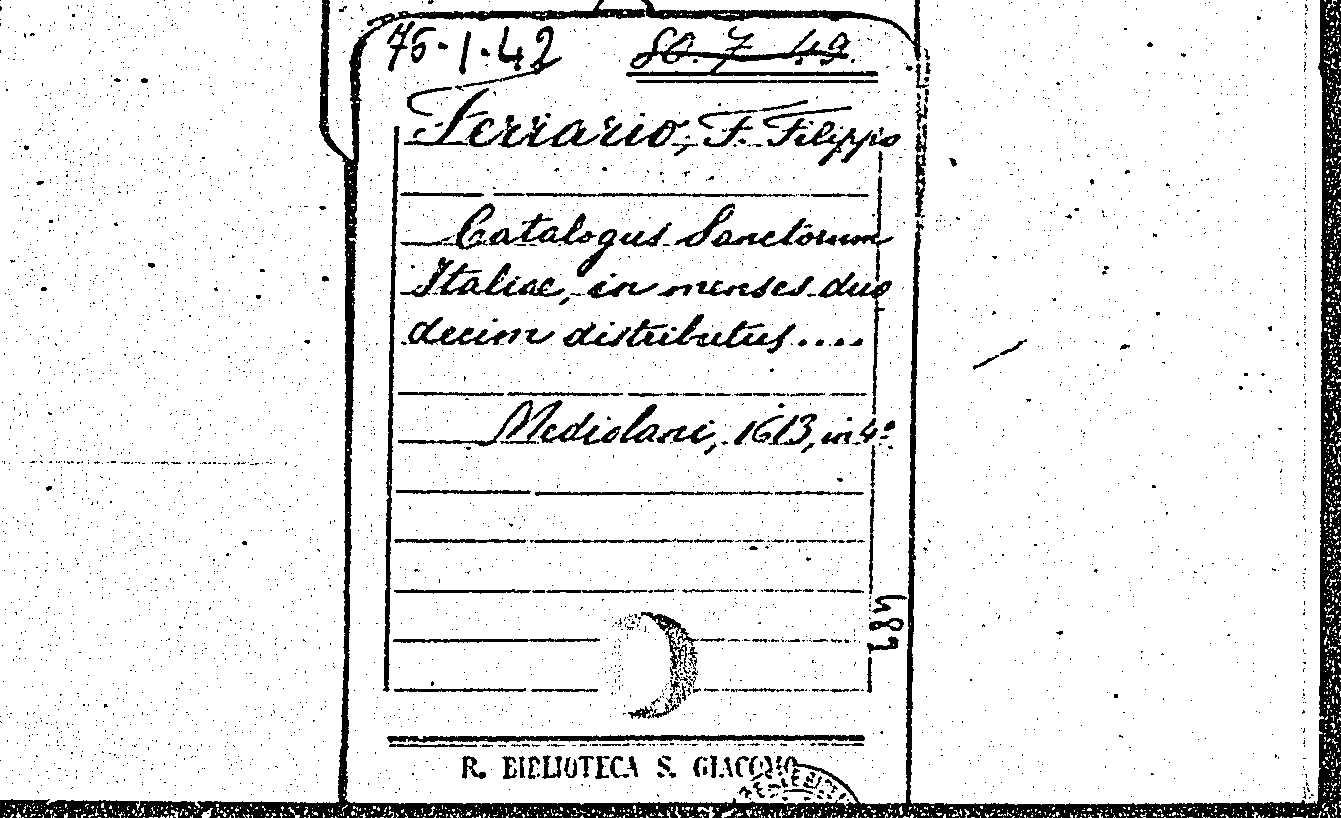 75-1-42 80. 7 49.
Ferrario, F. Filippo
Catalogus Sanctorum
Italiae, in menses duo
decim distributus....
Mediolani, 1613, in 4º.
489
R. BIBLIOTECA S. GIACOMO